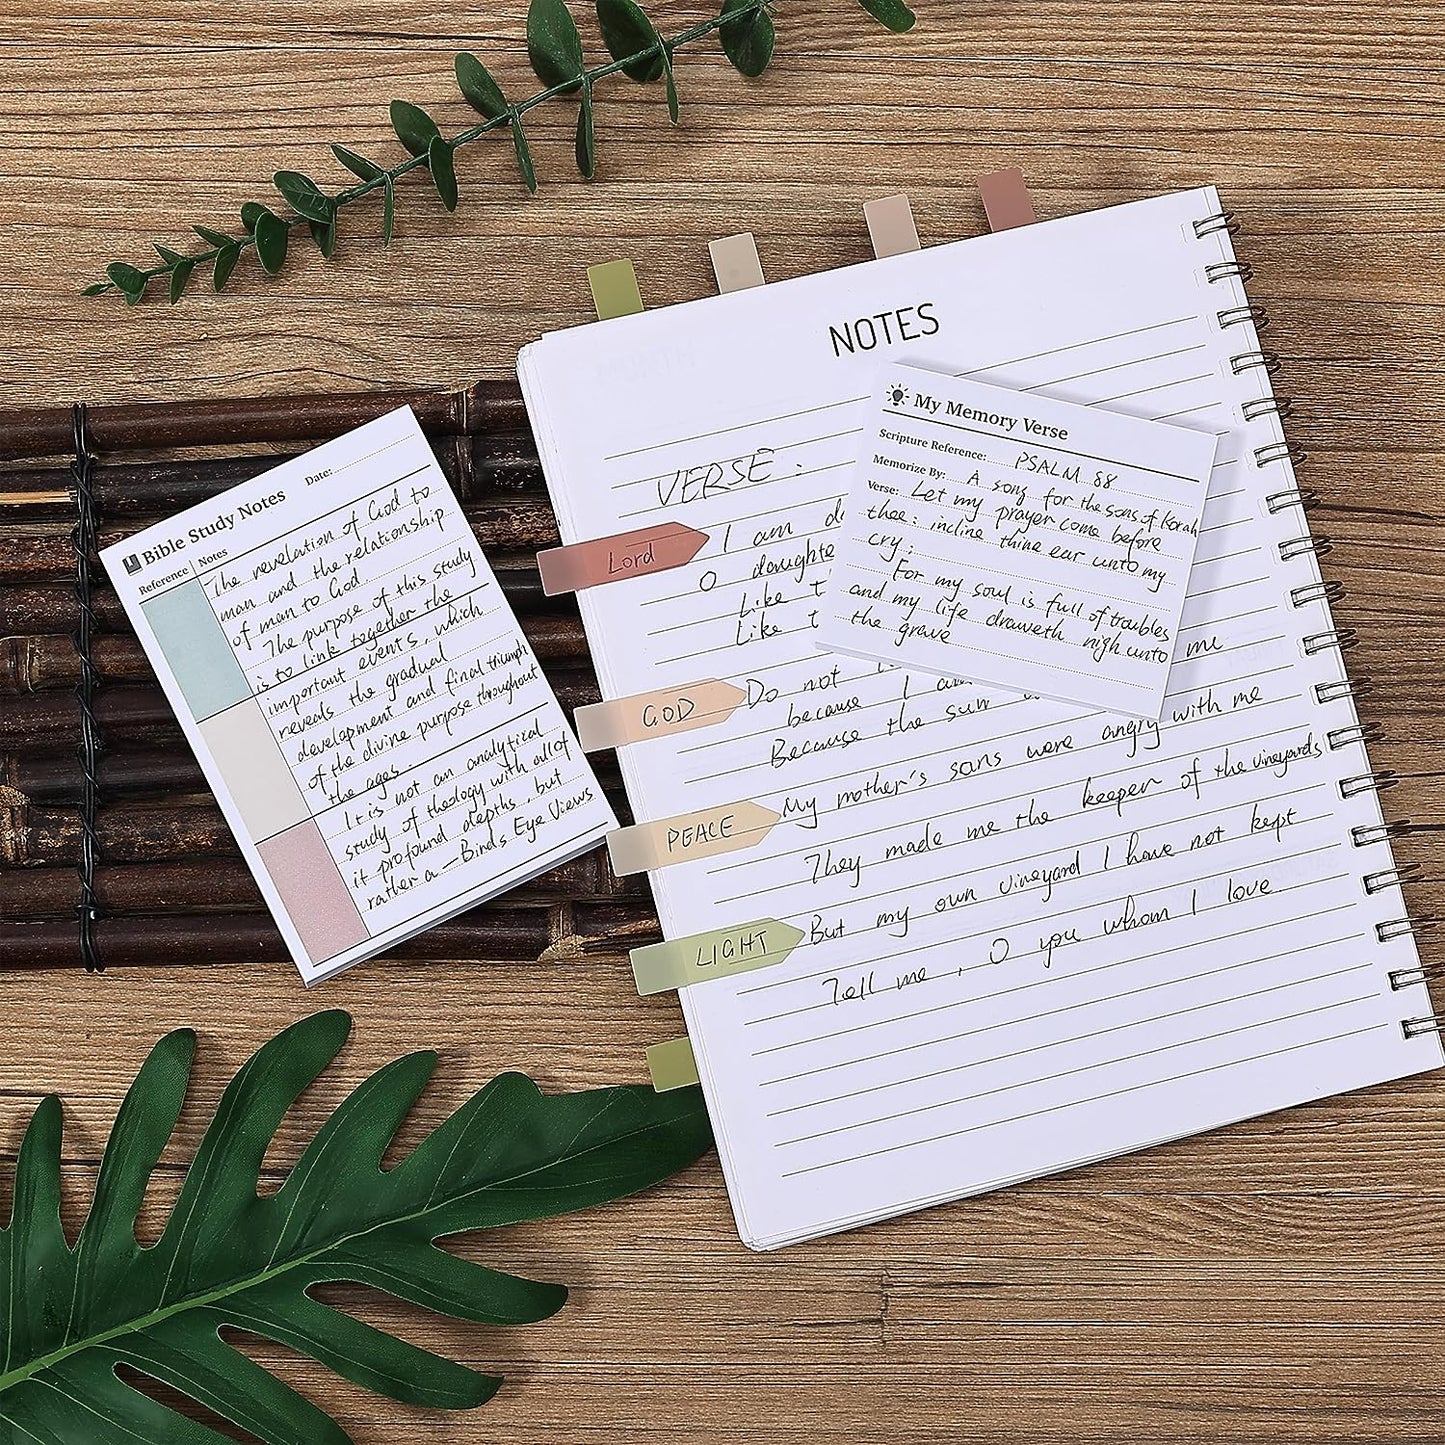 Bible Study Notes
Date:
Reference
Notes
The revelation of God to
man and the relationship
of man to God.
The purpose of this study
is to link together the
important events, which
reveals the gradual
development and final triumph
of the divine purpose throughout
the ages.
It is not an analytical
study of theology with all of
it profound depths, but
rather a — Binds Eye Views
NOTES
VERSE.
Lord
I am
O daughte
Like t
Like t
me
GOD
Do not
because I am
Because the sun
PEACE
My mother's sons were angry with me
They made me the keeper of the vineyards
LIGHT
But my own vineyard I have not kept
Tell me, O you whom I love
My Memory Verse
Scripture Reference: PSALM 88
Memorize By: A song for the sons of Korah
Verse: Let my prayer come before
thee: incline thine ear unto my
cry:
For my soul is full of troubles
and my life draweth nigh unto
the grave